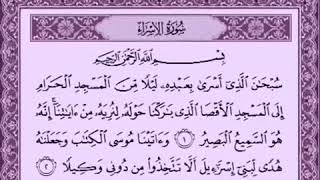 سُورَةُ الإِسْرَاءِ
بِسْمِ ٱللَّهِ ٱلرَّحْمَٰنِ ٱلرَّحِيمِ
سُبْحَٰنَ ٱلَّذِىٓ أَسْرَىٰ بِعَبْدِهِۦ لَيْلًا مِّنَ ٱلْمَسْجِدِ ٱلْحَرَامِ
إِلَى ٱلْمَسْجِدِ ٱلْأَقْصَا ٱلَّذِى بَٰرَكْنَا حَوْلَهُۥ لِنُرِيَهُۥ مِنْ ءَايَٰتِنَآ إِنَّهُۥ
هُوَ ٱلسَّمِيعُ ٱلْبَصِيرُ ١ وَءَاتَيْنَا مُوسَى ٱلْكِتَٰبَ وَجَعَلْنَٰهُ
هُدًى لِّبَنِىٓ إِسْرَٰٓءِيلَ أَلَّا تَتَّخِذُوا۟ مِن دُونِى وَكِيلًا ٢